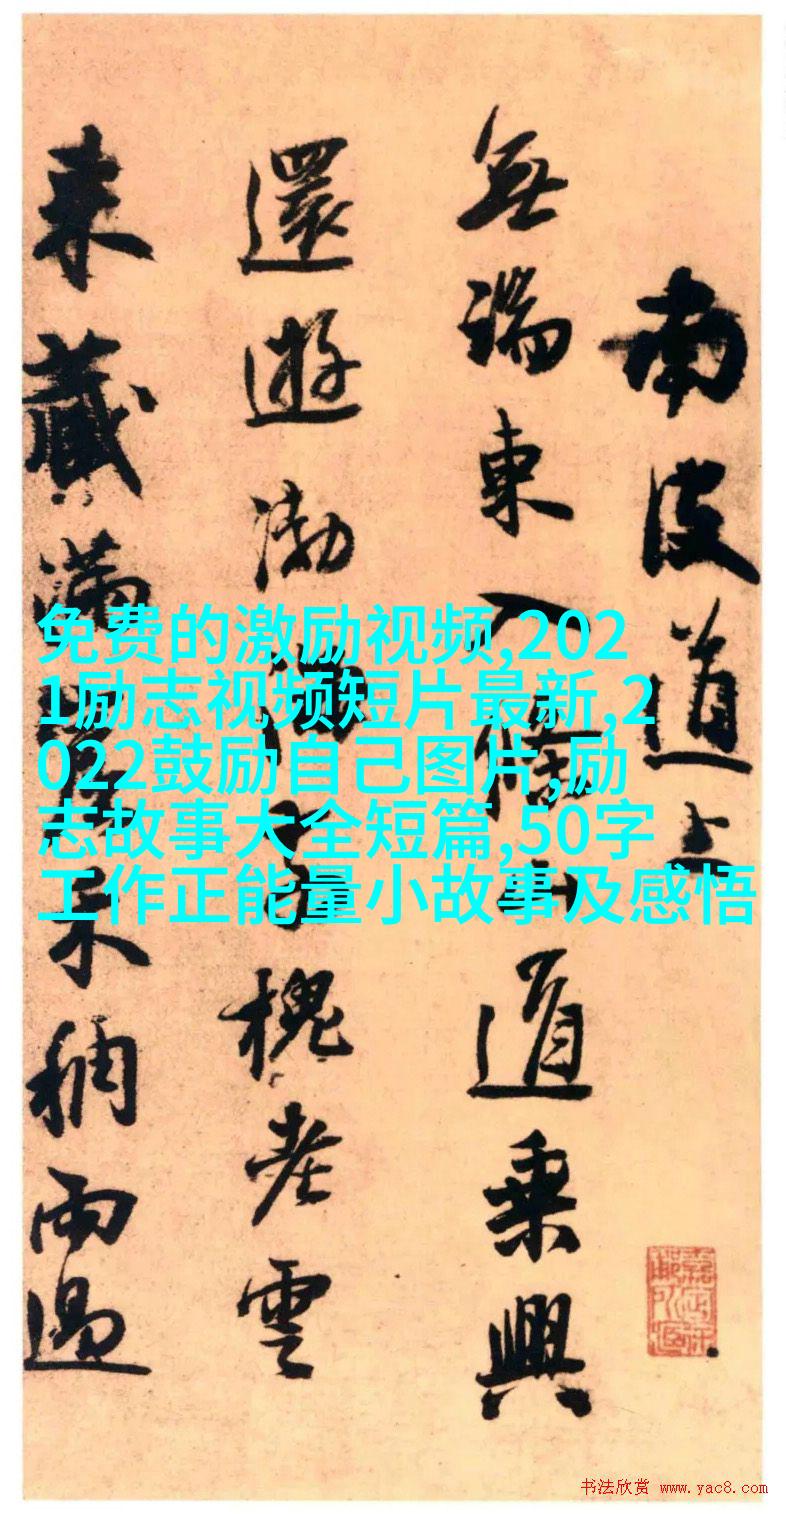 南皮道上
無端東入道乘興
還遊渤海槐老雲
來藏滿禾稠雨過
免费的激励视频,202
1励志视频短片最新,2
022鼓励自己图片,励
志故事大全短篇,50字
工作正能量小故事及感悟
书法欣赏 www.yac8.com